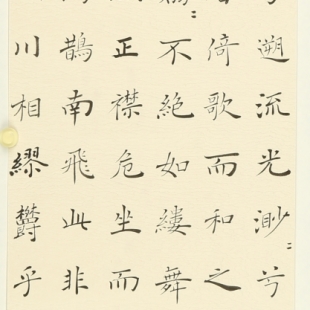 兮遡流光渺〻兮
倚歌而和之
〻不絕如縷舞
正襟危坐而
鵲南飛此非
川相繆鬱乎